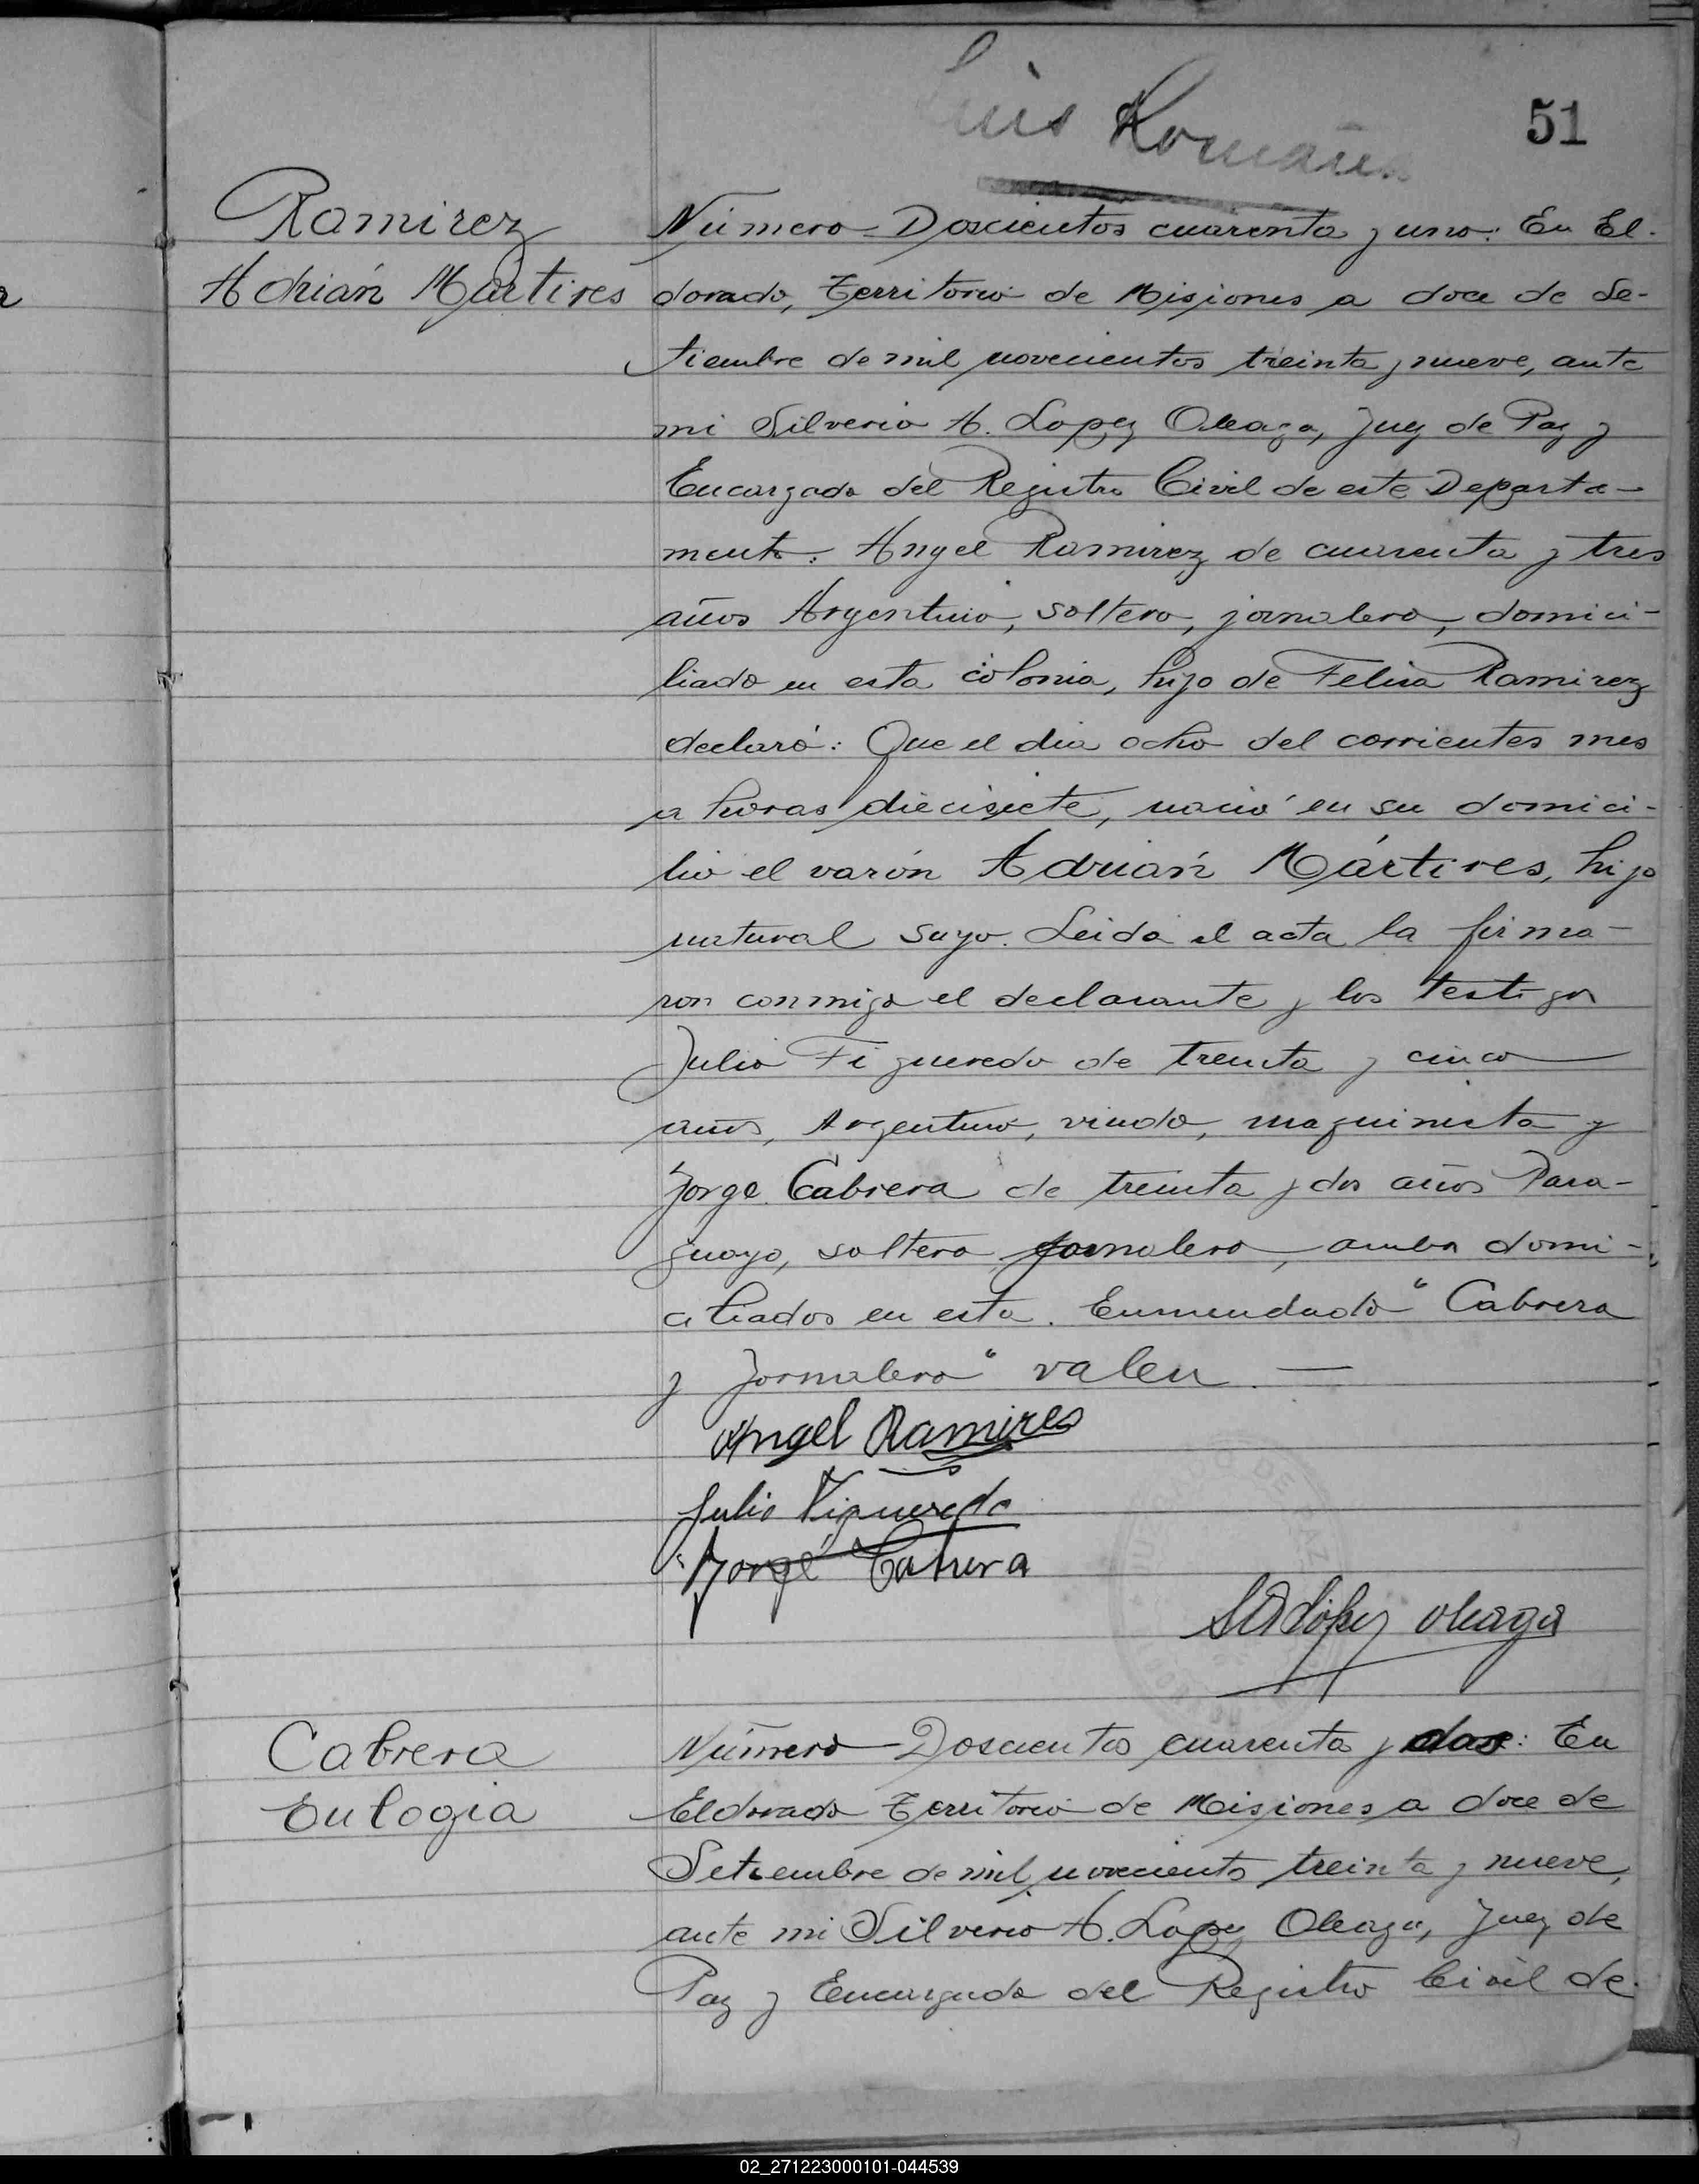 Luis Romañ
51
Ramirez
Adrián Mártires
Número Doscientos cuarenta y uno: En El-
dorado, Territorio de Misiones a doce de Se-
tiembre de mil novecientos treinta y nueve, ante
mi Silverio A. Lopez Oleaga, Juez de Paz y
Encargado del Registro Civil de este Departa-
mento: Angel Ramirez de cuarenta y tres
años Argentino, soltero, jornalero, domici-
liado en esta colonia, hijo de Felisa Ramirez
declaró: Que el dia ocho del corrientes mes
a horas diecisiete, nació en su domici-
lio el varón Adrián Mártires, hijo
natural suyo. Leida el acta la firma-
ron conmigo el declarante y los testigos
Julio Figueredo de treinta y cinco
años, Argentino, viudo, maquinista y
Jorge Cabrera de treinta y dos años Para-
guayo, soltero jornalero, ambos domi-
ciliados en esta. Enmendado "Cabrera
y Jornalero" valen. —
Angel Ramires
Julio Figueredo
Jorge Cabrera
SALópez Oleaga
Cabrera
Eulogia
Número Doscientos cuarenta y dos: En
Eldorado Territorio de Misiones, a doce de
Setiembre de mil novecientos treinta y nueve,
ante mi Silverio A. Lopez Oleaga, Juez de
Paz y Encargado del Registro Civil de
02_271223000101-044539